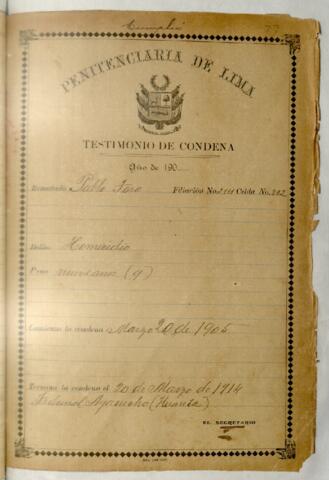 Cumplió
PENITENCIARIA DE LIMA
TESTIMONIO DE CONDENA
Año de 190
Rematado Pablo Faro Filiación No. Celda No. 202
Delito Homicidio
Pena nueve años (9)
Comienza la condena Marzo 20 de 1905
Termina la condena el 20 de Marzo de 1914
Tribunal Ayacucho (Huanta)
EL SECRETARIO